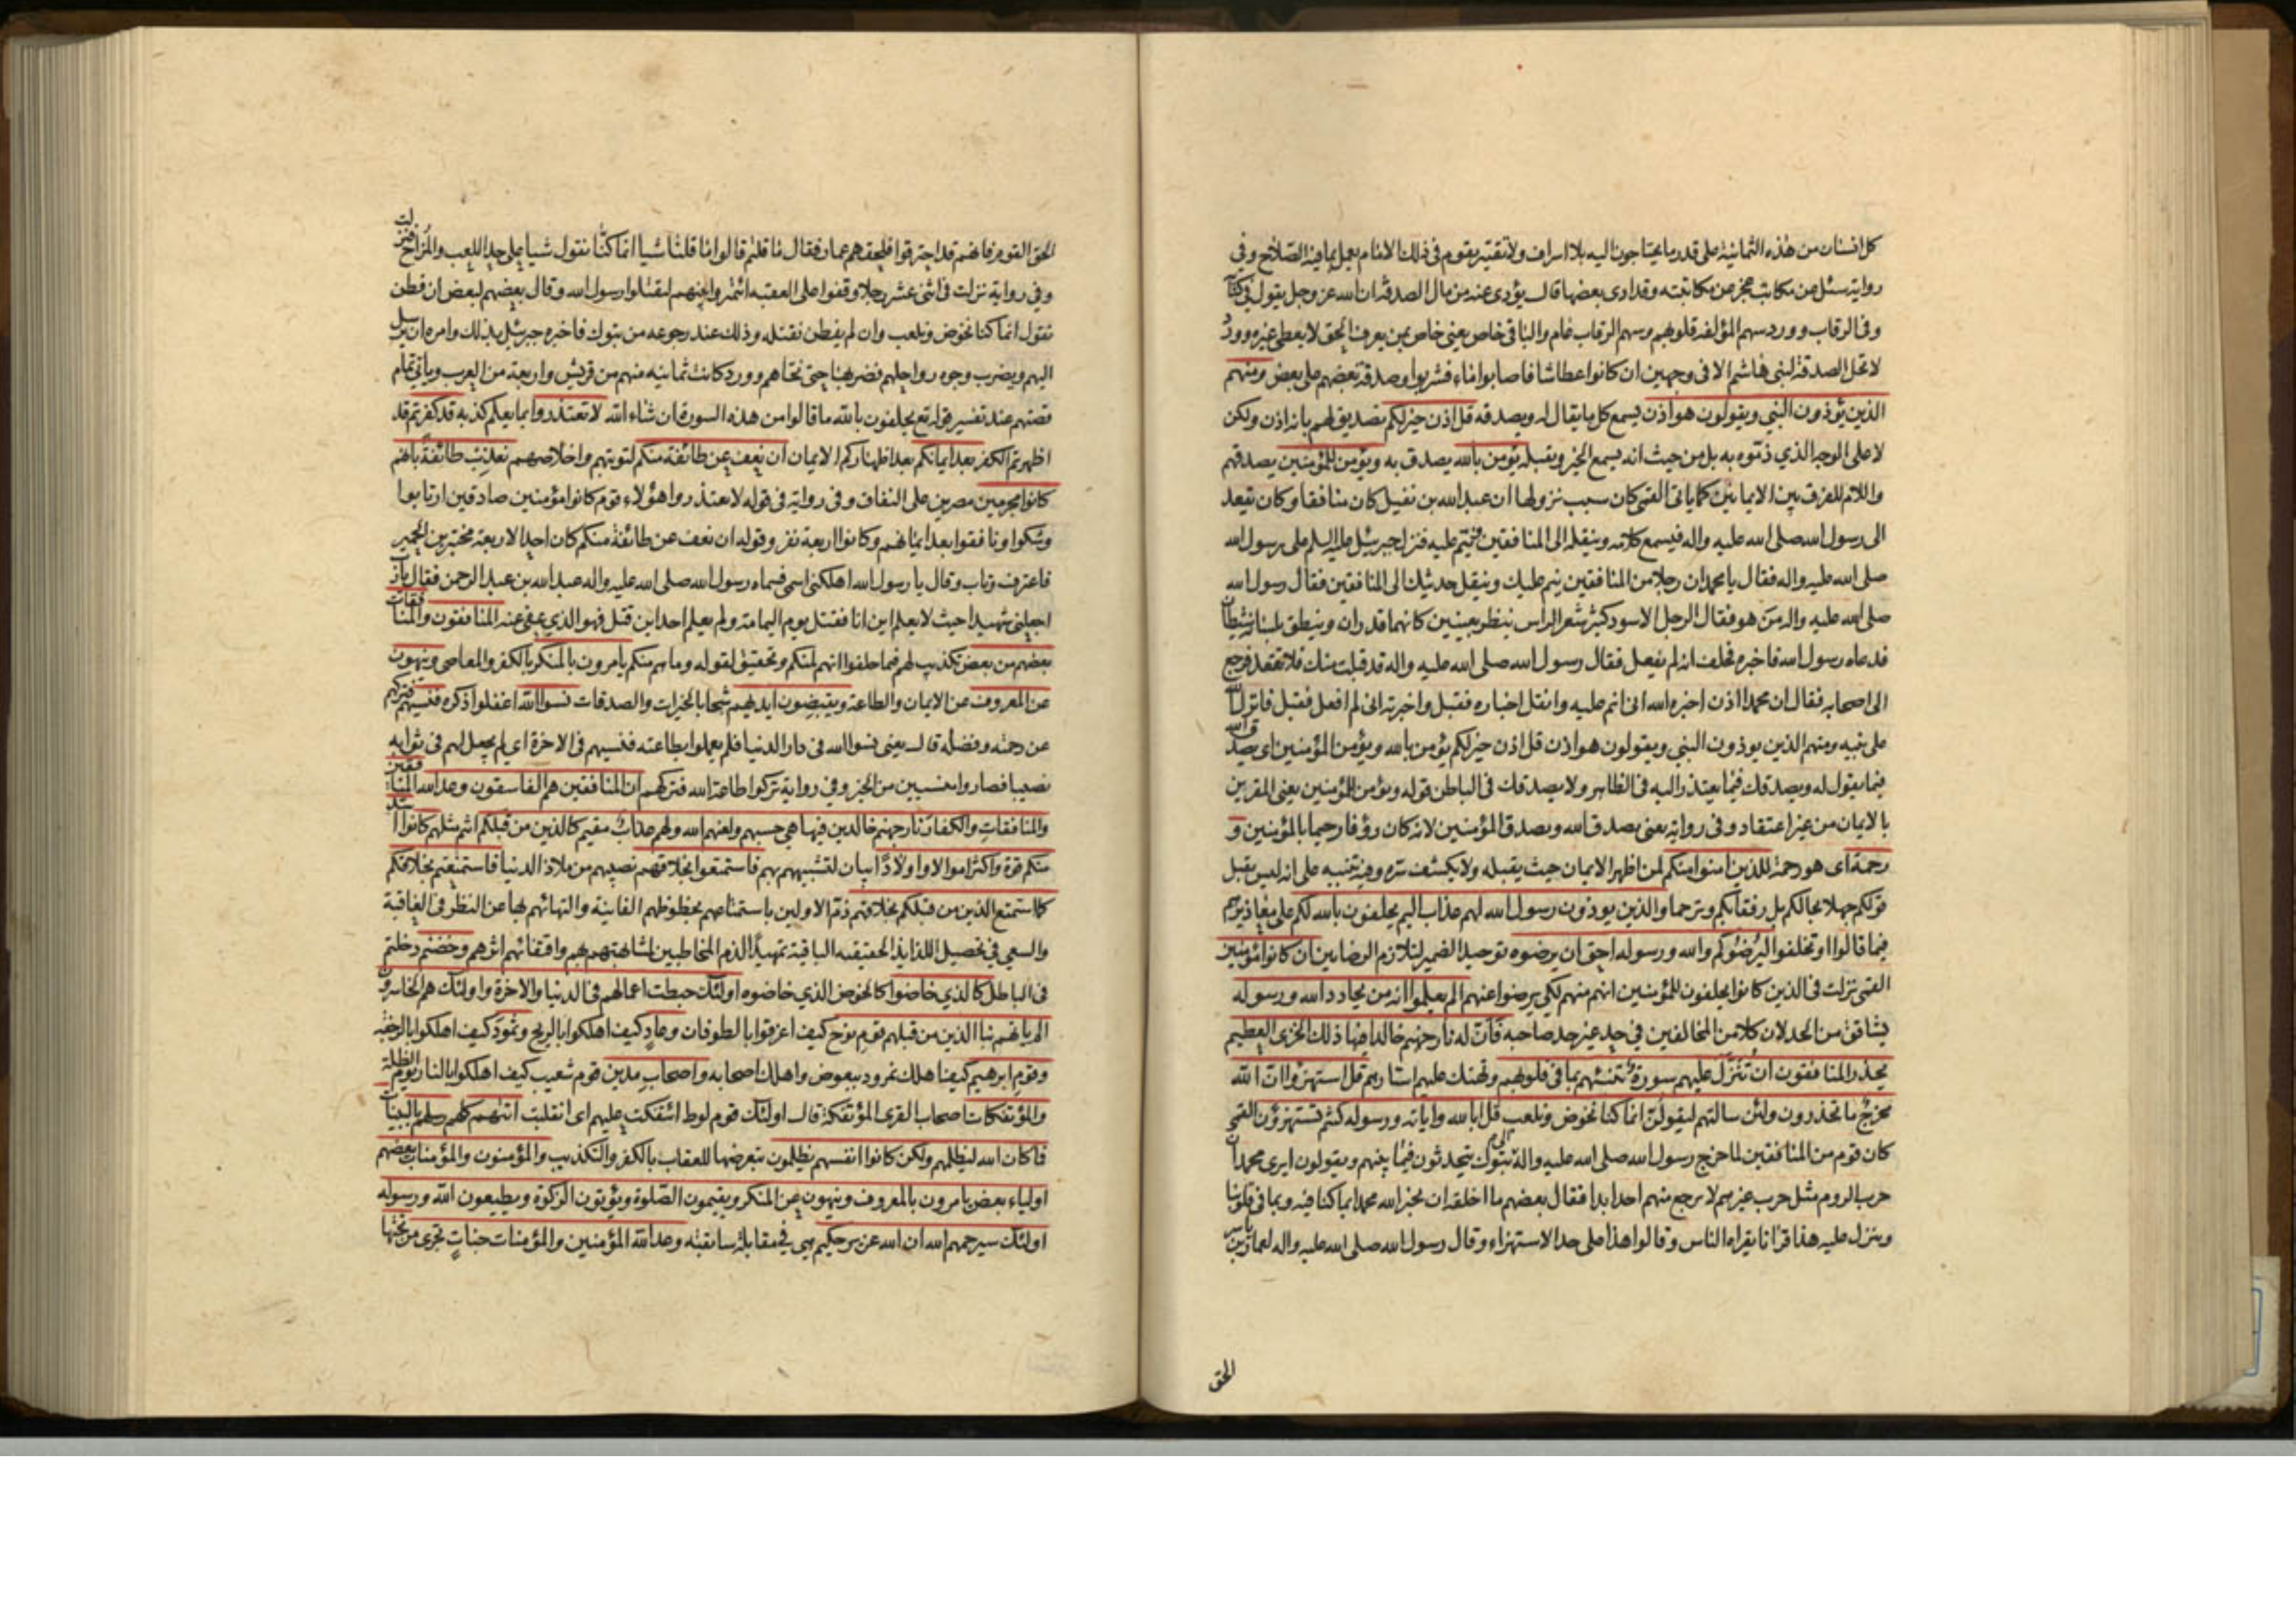 كل انسان من هذه الثمانية على قدر ما يحتاجون اليه بلا اسراف ولا تقتير يقوم في ذلك الامام يعمل بما فيه الصلاح وفي
رواية سئل عن مكاتب عجز عن مكاتبته وقد ادى بعضها قال يؤدى عنه من مال الصدقة ان الله عز وجل يقول في كتابه
وفى الرقاب وورد سهم المؤلفة قلوبهم وسهم الرقاب عام والباقى خاص يعنى خاص بمن يعرف الحق لا يعطى غيره وورد
لا تحل الصدقة لبنى هاشم الا في وجهين ان كانوا عطاشا فاصابوا ماء فشربوا وصدقة بعضهم على بعض ومنهم
الذين يؤذون النبي ويقولون هو اذن يسمع كل ما يقال له ويصدقه قل اذن خير لكم تصديق لهم بانه اذن ولكن
لا على الوجه الذي ذموه به بل من حيث انه يسمع الخير ويقبله يؤمن بالله يصدق به ويؤمن للمؤمنين يصدقهم
واللام للفرق بين الايمانين كما ياتى القمى كان سبب نزولها ان عبد الله بن نفيل كان منافقا وكان يقعد
الى رسول الله صلى الله عليه واله فيسمع كلامه وينقله الى المنافقين وينم عليه فنزل جبرئيل عليه السلم على رسول الله
صلى الله عليه واله فقال يا محمد ان رجلا من المنافقين ينم عليك وينقل حديثك الى المنافقين فقال رسول الله
صلى الله عليه واله من هو فقال الرجل الاسود كثير شعر الراس ينظر بعينين كانهما قدران وينطق بلسان شيطان
فدعاه رسول الله فاخبره فحلف انه لم يفعل فقال رسول الله صلى الله عليه واله قد قبلت منك فلا تقعد فرجع
الى اصحابه فقال ان محمدا اذن اخبره الله انى انم عليه وانقل اخباره فقبل واخبرته انى لم افعل فقبل فانزل الله
على نبيه ومنهم الذين يوذون النبي ويقولون هو اذن قل اذن خير لكم يؤمن بالله ويؤمن للمؤمنين اى يصدق الله
فيما يقول له ويصدقك فيما يعتذر اليه في الظاهر ولا يصدقك في الباطن قوله ويؤمن للمؤمنين يعنى المقرين
بالايمان من غير اعتقاد وفى رواية يعنى يصدق الله ويصدق المؤمنين لانه كان رؤفا رحيما بالمؤمنين و
رحمة اى هو رحمة للذين امنوا منكم لمن اظهر الايمان حيث يقبله ولا يكشف سره وفيه تنبيه على انه ليس يقبل
قولكم جهلا بحالكم بل رفقا بكم وترحما والذين يوذون رسول الله لهم عذاب اليم يحلفون بالله لكم على معاذيرهم
فيما قالوا او تخلفوا ليرضوكم والله ورسوله احق ان يرضوه توحيد الضمير لتلازم الرضايين ان كانوا مؤمنين
القمى نزلت في الذين كانوا يحلفون للمؤمنين انهم منهم لكى يرضوا عنهم الم يعلموا انه من يحادد الله ورسوله
يشاقق من الحد لان كلا من المخالفين في حد غير حد صاحبه فان له نار جهنم خالدا فيها ذلك الخزى العظيم
يحذر المنافقون ان تنزل عليهم سورة تنبئهم بما في قلوبهم وتهتك عليهم استارهم قل استهزؤا ان الله
مخرج ما تحذرون ولئن سالتهم ليقولن انما كنا نخوض ونلعب قل ابالله واياته ورسوله كنتم تستهزؤن القمى
كان قوم من المنافقين لما خرج رسول الله صلى الله عليه واله الى تبوك يتحدثون فيما بينهم ويقولون ايرى محمد ان
حرب الروم مثل حرب غيرهم لا يرجع منهم احد ابدا فقال بعضهم ما اخلقه ان يخبر الله محمدا بما كنا فيه وبما في قلوبنا
وينزل عليه هذا قرانا يقراه الناس وقالوا هذا على حد الاستهزاء وقال رسول الله صلى الله عليه واله لعمار بن ياسر
الحق
الحق القوم فانهم قد احترقوا فلحقهم عمار فقال ما قلتم قالوا ما قلنا شيا انما كنا نقول شيا على حد اللعب والمزاح فنزلت
وفي رواية نزلت في اثنى عشر رجلا وقفوا على العقبة ائتمروا بينهم ليقتلوا رسول الله وقال بعضهم لبعض ان فطن
نقول انما كنا نخوض ونلعب وان لم يفطن نقتله وذلك عند رجوعه من تبوك فاخبره جبرئيل بذلك وامره ان يرسل
اليهم ويضرب وجوه رواحلهم فضربها حتى نحاهم وورد كانت ثمانيه منهم من قريش واربعة من العرب وياتى تمام
قصتهم عند تفسير قوله تع يحلفون بالله ما قالوا من هذه السورة ان شاء الله لا تعتذروا بما يعلم كذبه قد كفرتم قد
اظهرتم الكفر بعد ايمانكم بعد اظهاركم الايمان ان نعف عن طائفة منكم لتوبتهم واخلاصهم نعذب طائفة بانهم
كانوا مجرمين مصرين على النفاق وفى رواية في قوله لا تعتذروا هؤلاء قوم كانوا مؤمنين صادقين ارتابوا
وشكوا ونافقوا بعد ايمانهم وكانوا اربعة نفر وقوله ان نعف عن طائفة منكم كان احد الاربعة مختبر بن الحمير
فاعترف وتاب وقال يا رسول الله اهلكنى اسمى فسماه رسول الله صلى الله عليه واله عبد الله بن عبد الرحمن فقال يا رب
اجعلنى شهيدا حيث لا يعلم اين انا فقتل يوم اليمامة ولم يعلم احد اين قتل فهو الذي عفى عنه المنافقون والمنافقات
بعضهم من بعض تكذيب لهم فيما حلفوا انهم لمنكم وتحقيق لقوله وما هم منكم يأمرون بالمنكر بالكفر والمعاصى وينهون
عن المعروف عن الايمان والطاعة ويقبضون ايديهم شحا بالخيرات والصدقات نسوا الله اغفلوا ذكره فنسيهم فتركهم
عن رحمته وفضله قال يعنى نسوا الله في دار الدنيا فلم يعملوا بطاعته فنسيهم في الاخرة اى لم يجعل لهم في ثوابه
نصيبا فصاروا منسيين من الخير وفى رواية تركوا طاعة الله فتركهم ان المنافقين هم الفاسقون وعد الله المنافقين
والمنافقات والكفار نار جهنم خالدين فيها هي حسبهم ولعنهم الله ولهم عذاب مقيم كالذين من قبلكم انتم مثلهم كانوا اشد
منكم قوة واكثر اموالا واولادا بيان لتشبيههم بهم فاستمتعوا بخلاقهم نصيبهم من ملاذ الدنيا فاستمتعتم بخلاقكم
كما استمتع الذين من قبلكم بخلاقهم ذم الاولين باستمتاعهم بحظوظهم الفانية والتهائهم بها عن النظر في العاقبة
والسعى في تحصيل اللذايذ الحقيقيه الباقية تمهيدا لذم المخاطبين لمشابهتهم بهم واقتفائهم اثرهم وخضتم دخلتم
فى الباطل كالذي خاضوا كالخوض الذي خاضوه اولئك حبطت اعمالهم في الدنيا والاخرة واولئك هم الخاسرون
الم ياتهم نبا الذين من قبلهم قوم نوح كيف اغرقوا بالطوفان وعاد كيف اهلكوا بالريح وثمود كيف اهلكوا بالرجفة
وقوم ابرهيم كيف اهلك نمرود ببعوض واهلك اصحابه واصحاب مدين قوم شعيب كيف اهلكوا بالنار يوم الظلة
والمؤتفكات اصحاب القرى المؤتفكة قال اولئك قوم لوط ائتفكت عليهم اى انقلبت اتتهم كلهم رسلهم بالبينات
فما كان الله ليظلمهم ولكن كانوا انفسهم يظلمون بتعرضها للعقاب بالكفر والتكذيب والمؤمنون والمؤمنات بعضهم
اولياء بعض يامرون بالمعروف وينهون عن المنكر ويقيمون الصلوة ويؤتون الزكوة ويطيعون الله ورسوله
اولئك سيرحمهم الله ان الله عزيز حكيم هى في مقابلة سابقته وعد الله المؤمنين والمؤمنات جنات تجرى من تحتها